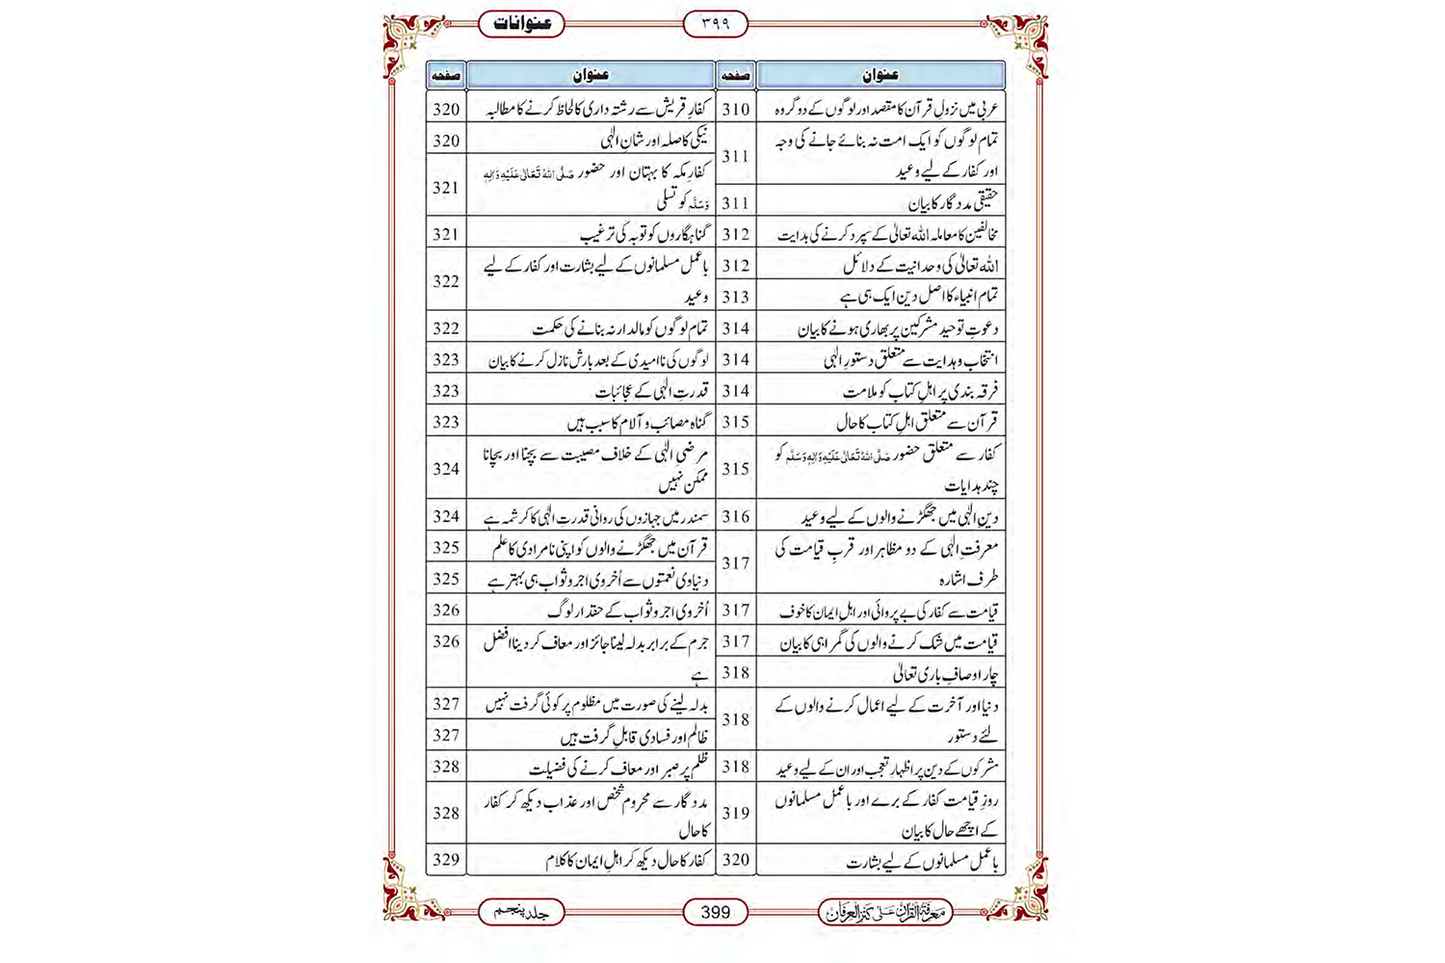 عنوانات
۳۹۹
عنوان صفحہ
عربی میں نزولِ قرآن کا مقصد اور لوگوں کے دو گروہ 310
تمام لوگوں کو ایک امت نہ بنائے جانے کی وجہ
اور کفار کے لیے وعید 311
حقیقی مددگار کا بیان 311
مخالفین کا معاملہ اللہ تعالیٰ کے سپرد کرنے کی ہدایت 312
اللہ تعالیٰ کی وحدانیت کے دلائل 312
تمام انبیاء کا اصل دین ایک ہی ہے 313
دعوتِ توحید مشرکین پر بھاری ہونے کا بیان 314
انتخاب و ہدایت سے متعلق دستورِ الٰہی 314
فرقہ بندی پر اہلِ کتاب کو ملامت 314
قرآن سے متعلق اہلِ کتاب کا حال 315
کفار سے متعلق حضور صَلَّی اللہُ تَعَالٰی عَلَیْہِ وَاٰلِہٖ وَسَلَّم کو
چند ہدایات 315
دینِ الٰہی میں جھگڑنے والوں کے لیے وعید 316
معرفتِ الٰہی کے دو مظاہر اور قربِ قیامت کی
طرف اشارہ 317
قیامت سے کفار کی بے پروائی اور اہلِ ایمان کا خوف 317
قیامت میں شک کرنے والوں کی گمراہی کا بیان 317
چار اوصافِ باری تعالیٰ 318
دنیا اور آخرت کے لیے اعمال کرنے والوں کے
لئے دستور 318
مشرکوں کے دین پر اظہارِ تعجب اور ان کے لیے وعید 318
روزِ قیامت کفار کے برے اور باعمل مسلمانوں
کے اچھے حال کا بیان 319
باعمل مسلمانوں کے لیے بشارت 320
عنوان صفحہ
کفارِ قریش سے رشتہ داری کا لحاظ کرنے کا مطالبہ 320
نیکی کا صلہ اور شانِ الٰہی 320
کفارِ مکہ کا بہتان اور حضور صَلَّی اللہُ تَعَالٰی عَلَیْہِ وَاٰلِہٖ
وَسَلَّم کو تسلی 321
گناہگاروں کو توبہ کی ترغیب 321
باعمل مسلمانوں کے لیے بشارت اور کفار کے لیے
وعید 322
تمام لوگوں کو مالدار نہ بنانے کی حکمت 322
لوگوں کی ناامیدی کے بعد بارش نازل کرنے کا بیان 323
قدرتِ الٰہی کے عجائبات 323
گناہ مصائب و آلام کا سبب ہیں 323
مرضیِ الٰہی کے خلاف مصیبت سے بچنا اور بچانا
ممکن نہیں 324
سمندر میں جہازوں کی روانی قدرتِ الٰہی کا کرشمہ ہے 324
قرآن میں جھگڑنے والوں کو اپنی نامرادی کا علم 325
دنیاوی نعمتوں سے اُخروی اجر و ثواب ہی بہتر ہے 325
اُخروی اجر و ثواب کے حقدار لوگ 326
جرم کے برابر بدلہ لینا جائز اور معاف کر دینا افضل 326
ہے
بدلہ لینے کی صورت میں مظلوم پر کوئی گرفت نہیں 327
ظالم اور فسادی قابلِ گرفت ہیں 327
ظلم پر صبر اور معاف کرنے کی فضیلت 328
مددگار سے محروم شخص اور عذاب دیکھ کر کفار
کا حال 328
کفار کا حال دیکھ کر اہلِ ایمان کا کلام 329
معرفۃ القرآن علٰی کنز العرفان
399
جلد پنجم